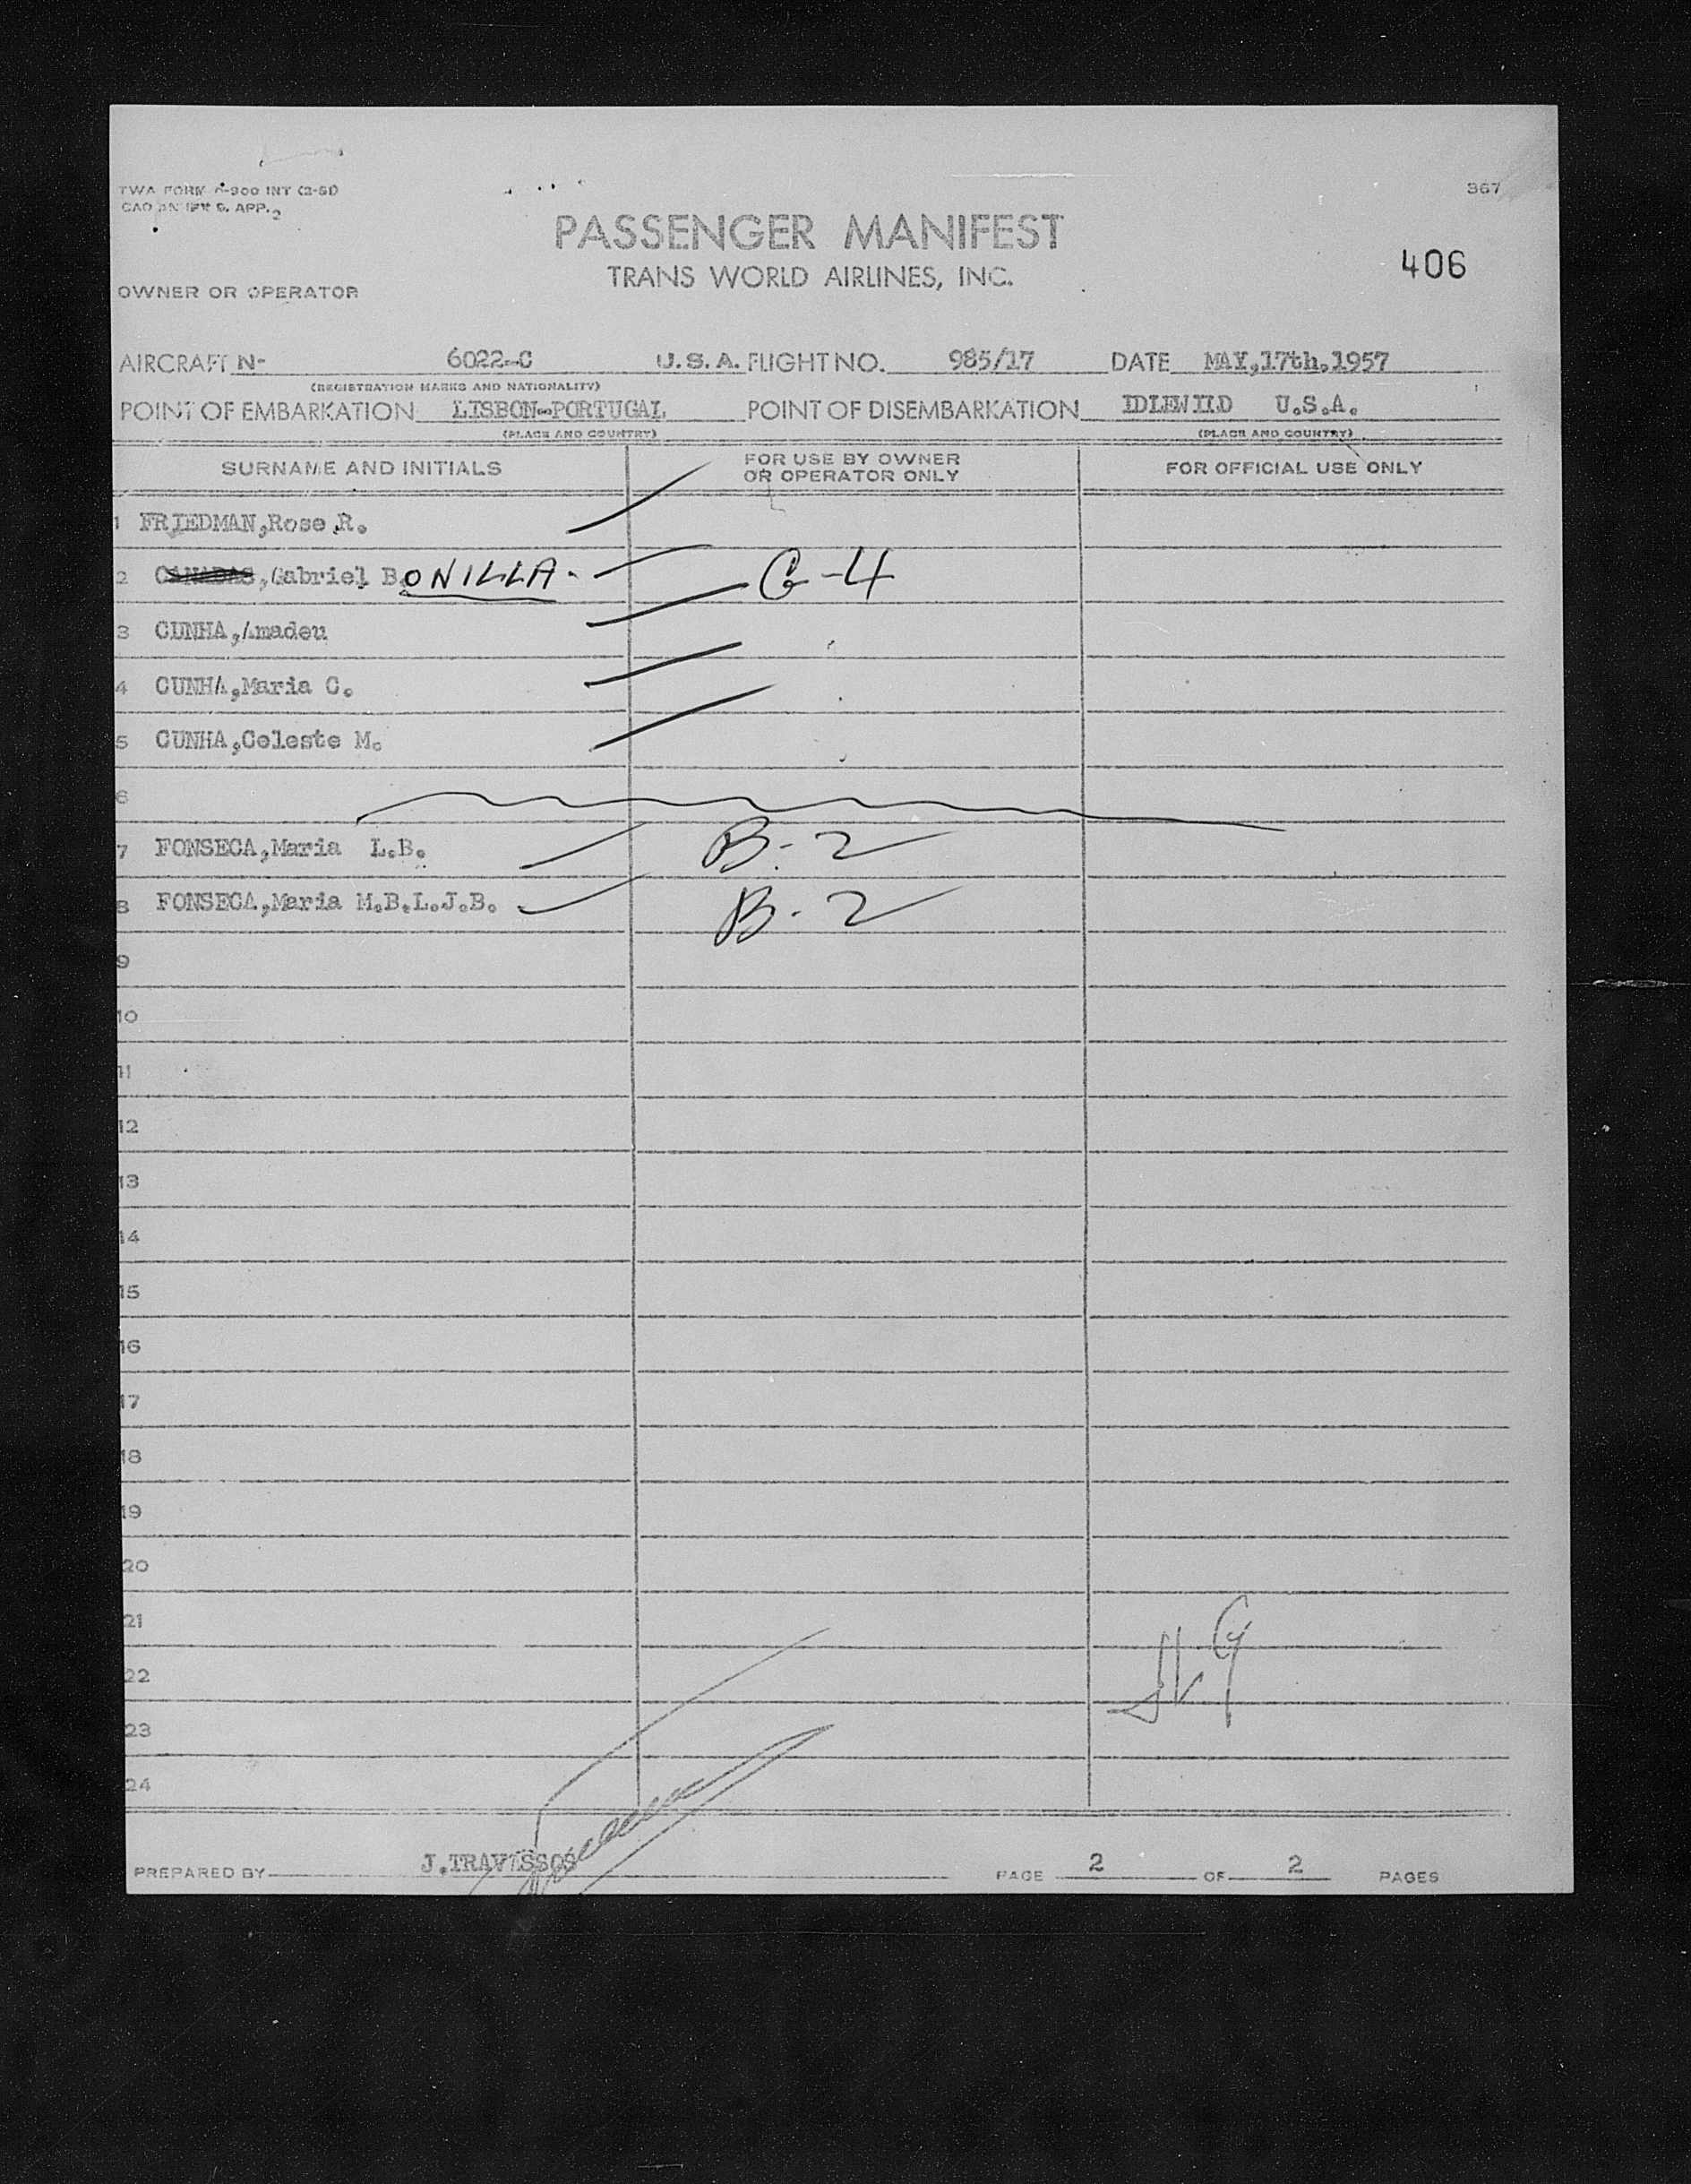 367
PASSENGER MANIFEST
406
TRANS WORLD AIRLINES, INC.
OWNER OR OPERATOR
AIRCRAFT N- 6022-C U.S.A. FLIGHT NO. 985/17 DATE MAY,17th.1957
(REGISTRATION MARKS AND NATIONALITY)
POINT OF EMBARKATION LISBON-PORTUGAL POINT OF DISEMBARKATION IDLEWILD U.S.A.
(PLACE AND COUNTRY) (PLACE AND COUNTRY)
SURNAME AND INITIALS FOR USE BY OWNER OR OPERATOR ONLY FOR OFFICIAL USE ONLY
1 FRIEDMAN,Rose R.
2 CANADAS,Gabriel B.ONILLA- G-4
3 CUNHA,Amadeu
4 CUNHA,Maria C.
5 CUNHA,Celeste M.
6
7 FONSECA,Maria L.B. B-2
8 FONSECA,Maria M.B.L.J.B. B-2
9
10
11
12
13
14
15
16
17
18
19
20
21
22
23
24
PREPARED BY J.TRAVESSOS PAGE 2 OF 2 PAGES